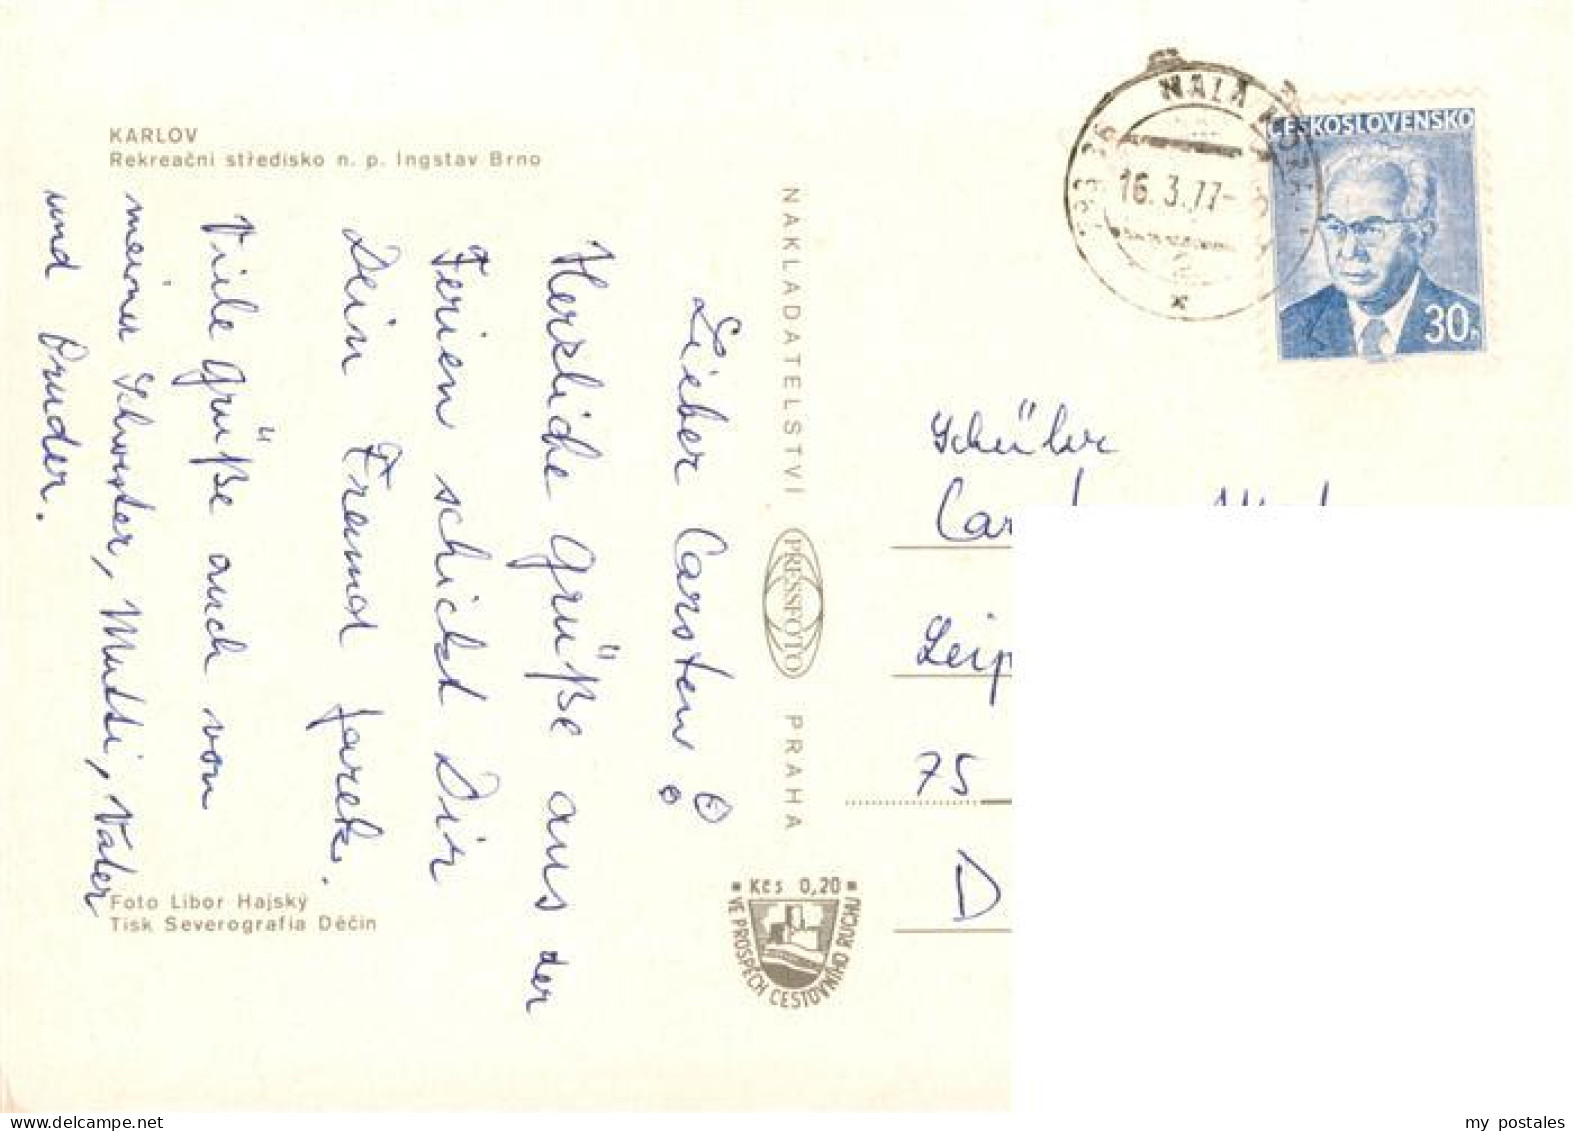 KARLOV
Rekreační středisko n. p. Ingstav Brno
Lieber Carsten!
Herzliche Grüße aus der
Ferien schickt Dir
Dein Freund Jarek.
Viele Grüße auch von
meiner Schwester, Mutti, Vater
und Bruder.
Foto Libor Hajský
Tisk Severografia Děčín
NAKLADATELSTVÍ PRESSFOTO PRAHA
Kčs 0,20
VE PROSPĚCH CESTOVNÍHO RUCHU
MALÁ
16.3.77
ČESKOSLOVENSKO
30h
Schüler
Leip
75
D
my postales